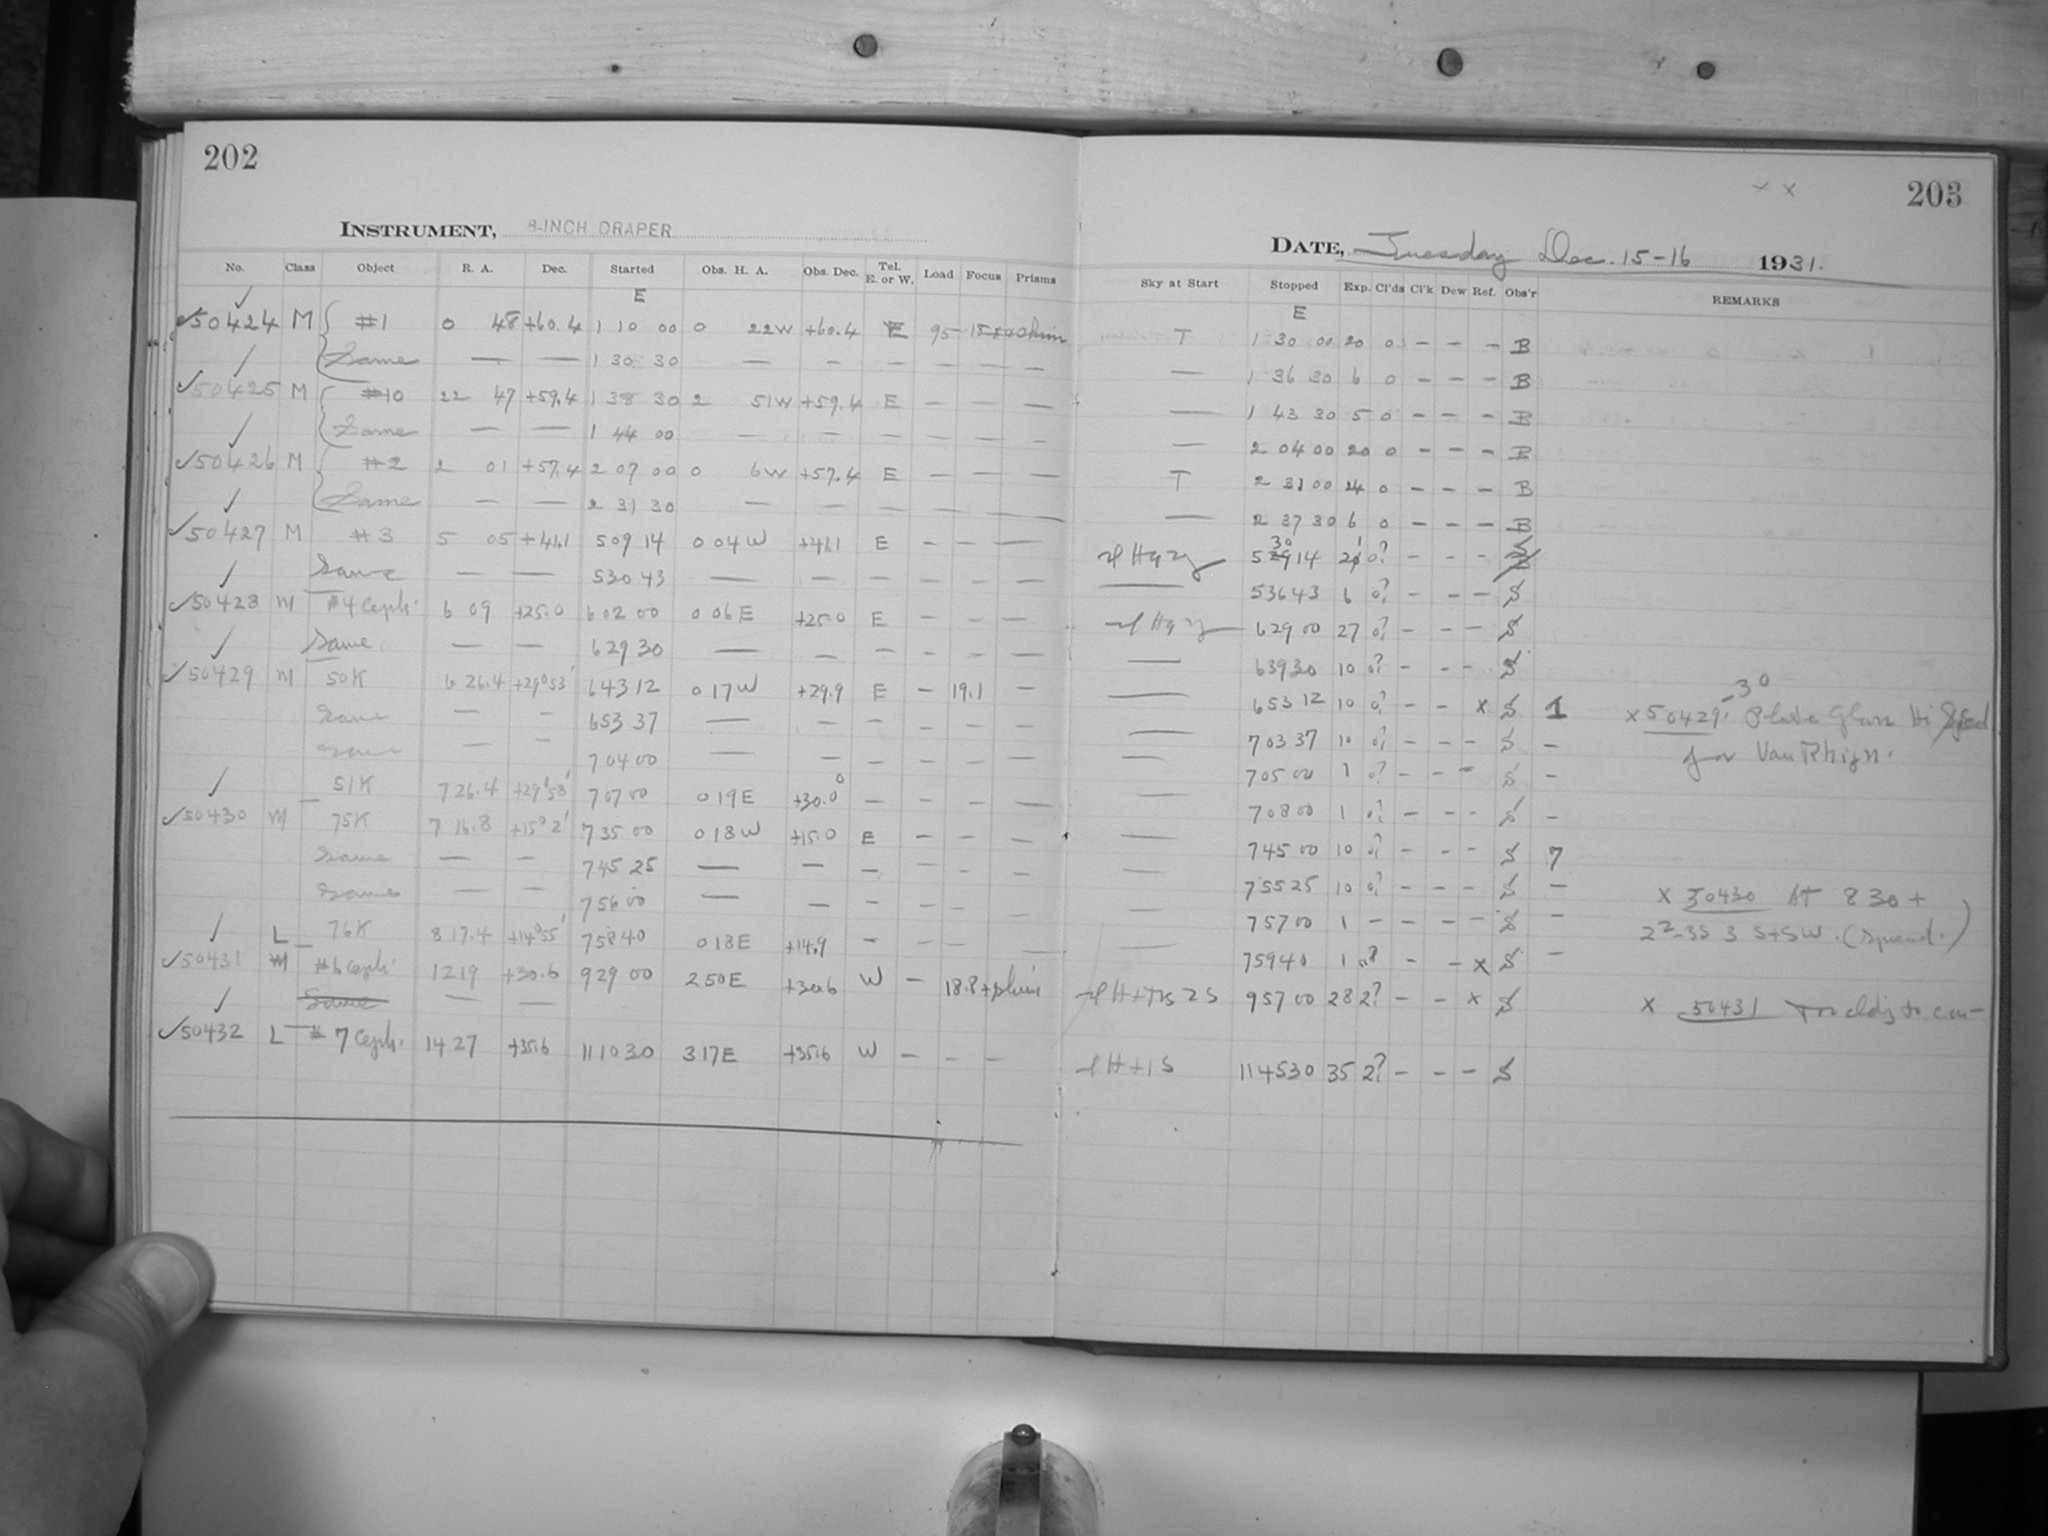 202
INSTRUMENT, 8-INCH DRAPER
No. Class Object R. A. Dec. Started Obs. H. A. Obs. Dec. Tel. E. or W. Load Focus Prisms
E
50424 M #1 0 48 +60.4 1 10 00 0 22W +60.4 E 95
Same — — 1 30 30 — — — — — —
50425 M #10 22 47 +59.4 1 38 30 2 51W +59.4 E — — —
Same — — 1 44 00 — — — — — —
50426 M #2 2 01 +57.4 2 07 00 0 6W +57.4 E — — —
Same — — 2 31 30 — — — — — —
50427 M #3 5 05 +41.1 5 09 14 0 04W +41.1 E — — —
Same — — 5 30 43 — — — — — —
50428 M #4 Ceph. 6 09 +25.0 6 02 00 0 06E +25.0 E — — —
Same — — 6 29 30 — — — — — —
50429 M 50K 6 26.4 +29°53' 6 43 12 0 17W +29.9 E — 19.1 —
Same — — 6 53 37 — — — — — —
Same — — 7 04 00 — — — — — —
51K 7 26.4 +29°58' 7 07 00 0 19E +30.0 — — — —
50430 M 75K 7 16.8 +15°2' 7 35 00 0 18W +15.0 E — — —
Same — — 7 45 25 — — — — —
Same — — 7 56 00 — — — — — —
76K 8 17.4 +14°55' 7 58 40 0 18E +14.9 — — — —
50431 L #6 Ceph. 12 19 +30.6 9 29 00 2 50E +30.6 W — 18.8
Same — —
50432 L #7 Ceph. 14 27 +35.6 11 10 30 3 17E +35.6 W — — —
203
x x
DATE, Tuesday Dec. 15-16 1931.
Sky at Start Stopped Exp. Cl'ds Cl'k Dew Ref. Obs'r REMARKS
E
T 1 30 00 20 0 — — — B
— 1 36 30 6 0 — — — B
— 1 43 30 5 0 — — — B
— 2 04 00 20 0 — — — B
T 2 31 00 24 0 — — — B
— 2 37 30 6 0 — — — B
5 30 14 21 0? — — — S
— 5 36 43 6 0? — — — S
6 29 00 27 0? — — — S
— 6 39 30 10 0? — — — S
— 6 53 12 10 0? — — x S 1 x 50429-30 Plate Glass Hi Speed
— 7 03 37 10 0? — — — S — for Van Rhijn.
— 7 05 00 1 0? — — — S —
— 7 08 00 1 0? — — — S —
— 7 45 00 10 0? — — — S 7
— 7 55 25 10 0? — — — S — x 50430 At 8 30 +
— 7 57 00 1 — — — — S —
— 7 59 40 1 0? — — x S —
9 57 00 28 2? — — x S x 50431
11 45 30 35 2? — — — S